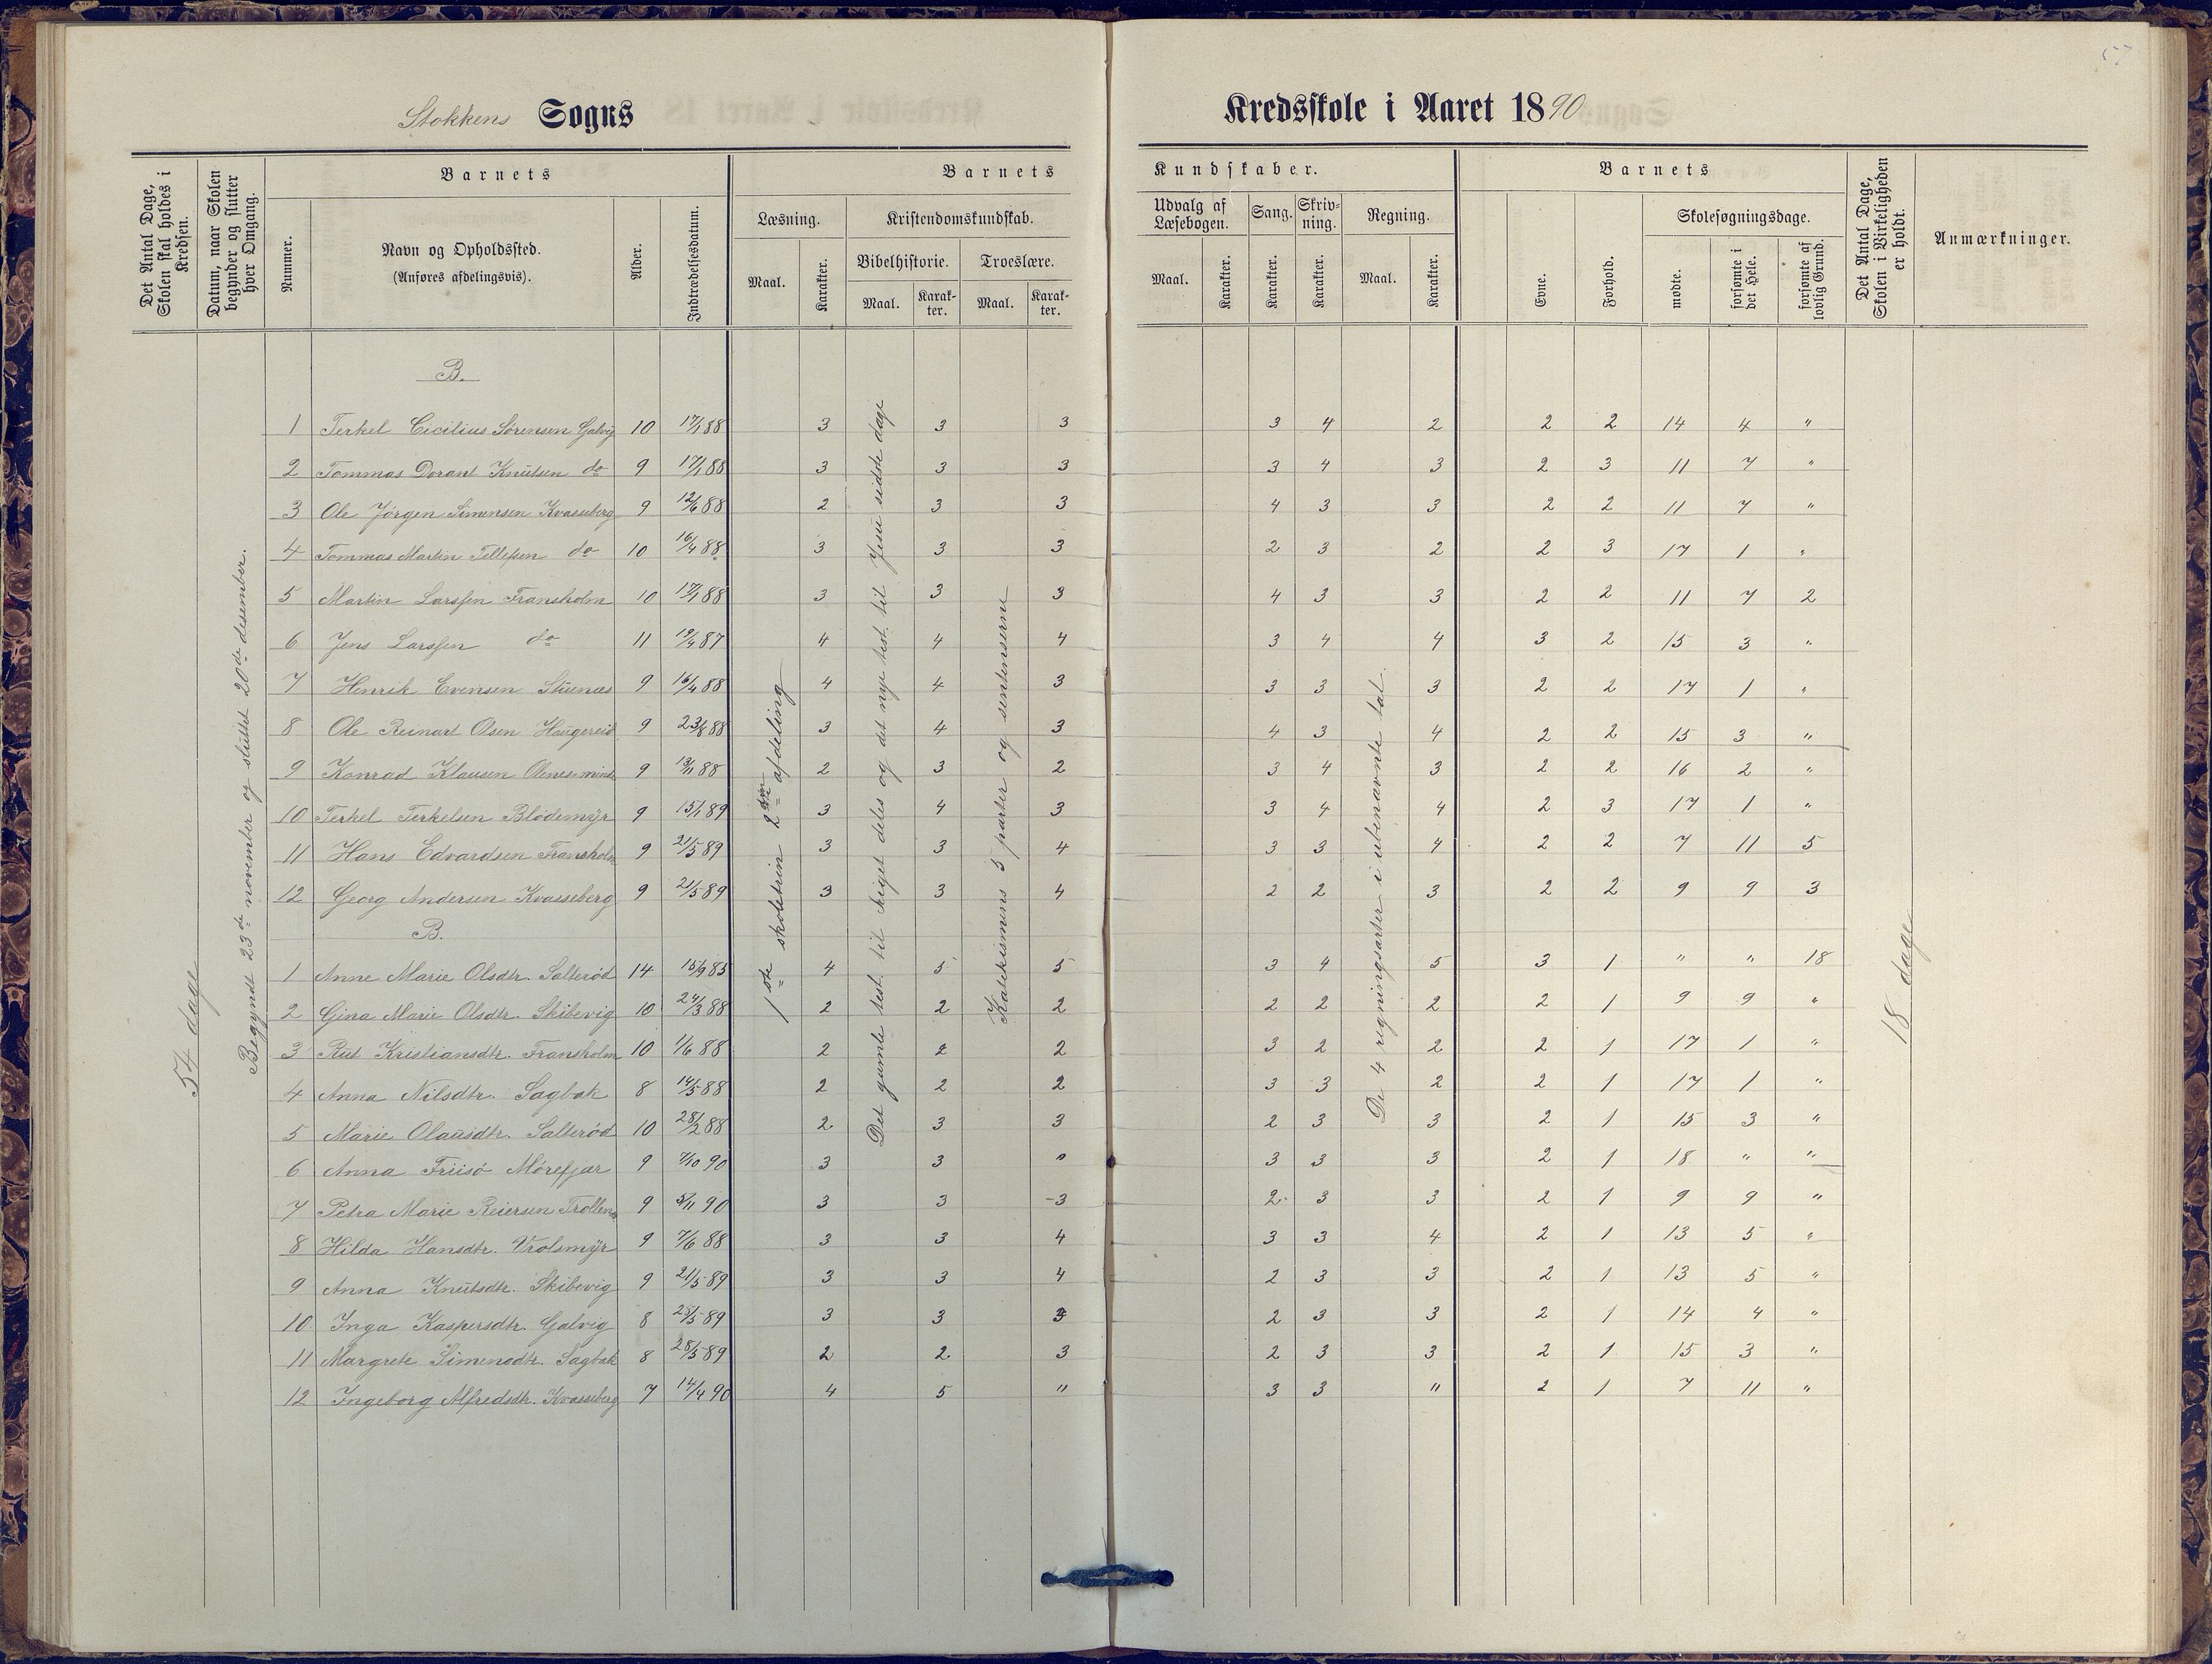 Stokkens Sogns
Kredsskole i Aaret 1890
Det Antal Dage, Skolen skal holdes i Kredsen.
Datum, naar Skolen begynder og slutter hver Omgang.
Barnets
Nummer.
Navn og Opholdssted.
(Anføres afdelingsvis).
Alder.
Indtrædelsesdatum.
Barnets
Kundskaber.
Læsning.
Maal.
Karakter.
Kristendomskundskab.
Bibelhistorie.
Maal.
Karakter.
Troeslære.
Maal.
Karakter.
Udvalg af Læsebogen.
Maal.
Karakter.
Sang.
Karakter.
Skrivning.
Karakter.
Regning.
Maal.
Karakter.
Barnets
Evne.
Forhold.
Skolesøgningsdage.
mødte.
forsømte i det Hele.
forsømte af lovlig Grund.
Det Antal Dage, Skolen i Virkeligheden er holdt.
Anmærkninger.
54 dage
Begyndt 23de november og sluttet 20de desember.
1ste skoletrin 2den afdeling
Det gamle test. til riget deles og det nye test. til Jesu sidste dage
Katekismens 5 parter og sentenserne
De 4 regningsarter i ubenævnte tal.
18 dage
B.
1 Terkel Cicilius Sörensen Galvig 10 17/1 88 3 3 3 3 4 2 2 2 14 4 "
2 Tommas Dorant Knutsen do 9 17/1 88 3 3 3 3 4 3 2 3 11 7 "
3 Ole Jörgen Simensen Kvasseberg 9 12/6 88 2 3 3 4 3 3 2 2 11 7 "
4 Tommas Martin Tellefsen do 10 16/4 88 3 3 3 2 3 2 2 3 17 1 "
5 Martin Larssen Fransholm 10 17/1 88 3 3 3 4 3 3 2 2 11 7 2
6 Jens Larssen do 11 19/4 87 4 4 4 3 4 4 3 2 15 3 "
7 Henrik Evensen Stuenæs 9 16/4 88 4 4 3 3 3 3 2 2 17 1 "
8 Ole Reinart Olsen Haugereid 9 23/8 88 3 4 3 4 3 4 2 2 15 3 "
9 Konrad Klausen 9 13/11 88 2 3 2 3 4 3 2 2 16 2 "
10 Terkel Terkelsen Blödemyr 9 15/1 89 3 4 3 3 4 4 2 3 17 1 "
11 Hans Edvardsen Fransholm 9 21/5 89 3 3 4 3 3 4 2 2 7 11 5
12 Georg Andersen Kvasseberg 9 21/5 89 3 3 4 2 2 3 2 2 9 9 3
B.
1 Anne Marie Olsdtr. Salteröd 14 15/9 85 4 5 5 3 4 5 3 1 " " 18
2 Gina Marie Olsdtr. Skibevig 10 24/3 88 2 2 2 2 2 2 2 1 9 9 "
3 Rut Kristiansdtr. Fransholm 10 1/6 88 2 2 2 3 2 2 2 1 17 1 "
4 Anna Nilsdtr. Sagbak 8 14/5 88 2 2 2 3 3 2 2 1 17 1 "
5 Marie Olausdtr. Salteröd 10 28/2 88 2 3 3 2 3 3 2 1 15 3 "
6 Anna Friisö Mörefjær 9 7/10 90 3 3 " 3 3 3 2 1 18 " "
7 Petra Marie Reiersen Trollenæs 9 5/11 90 3 3 3 2 3 3 2 1 9 9 "
8 Hilda Hansdtr. Vrolsmyr 9 7/6 88 3 3 4 3 3 4 2 1 13 5 "
9 Anna Knutsdtr. Skibevig 9 21/5 89 3 3 4 2 3 3 2 1 13 5 "
10 Inga Kaspersdtr. Galvig 8 28/5 89 3 3 3 2 3 3 2 1 14 4 "
11 Margrete Simensdtr. Sagbak 8 28/5 89 2 2 3 2 3 3 2 1 15 3 "
12 Ingeborg Alfredsdtr. Kvasseberg 7 14/4 90 4 5 " 3 3 " 2 1 7 11 "